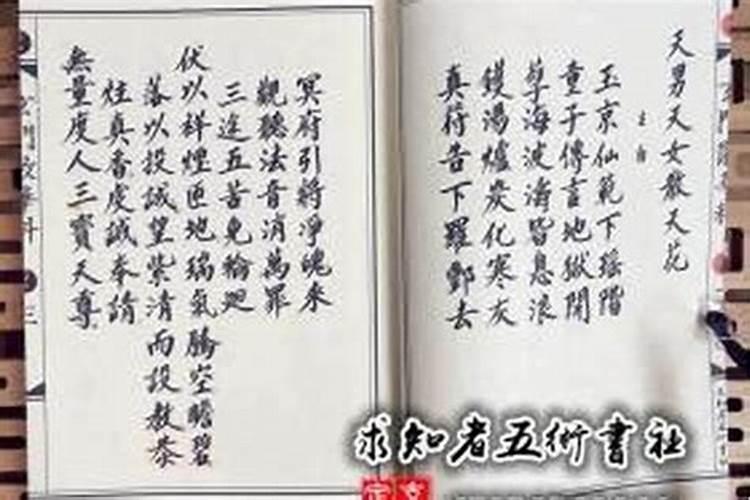 天男天女散天花
玉京仙範下瑶階
童子傳言地獄開
孽海波濤皆息浪
鑊湯爐炭化寒灰
真符告下羅酆去
冥府引將凈魄來
觀聽法音消萬罪
三途五苦免輪迴
伏以祥煙匝地瑞氣騰空瞻碧
落以投誠望紫清而設教恭
炷真香虔誠奉請
無量度人三寶天尊
求知者五術書社